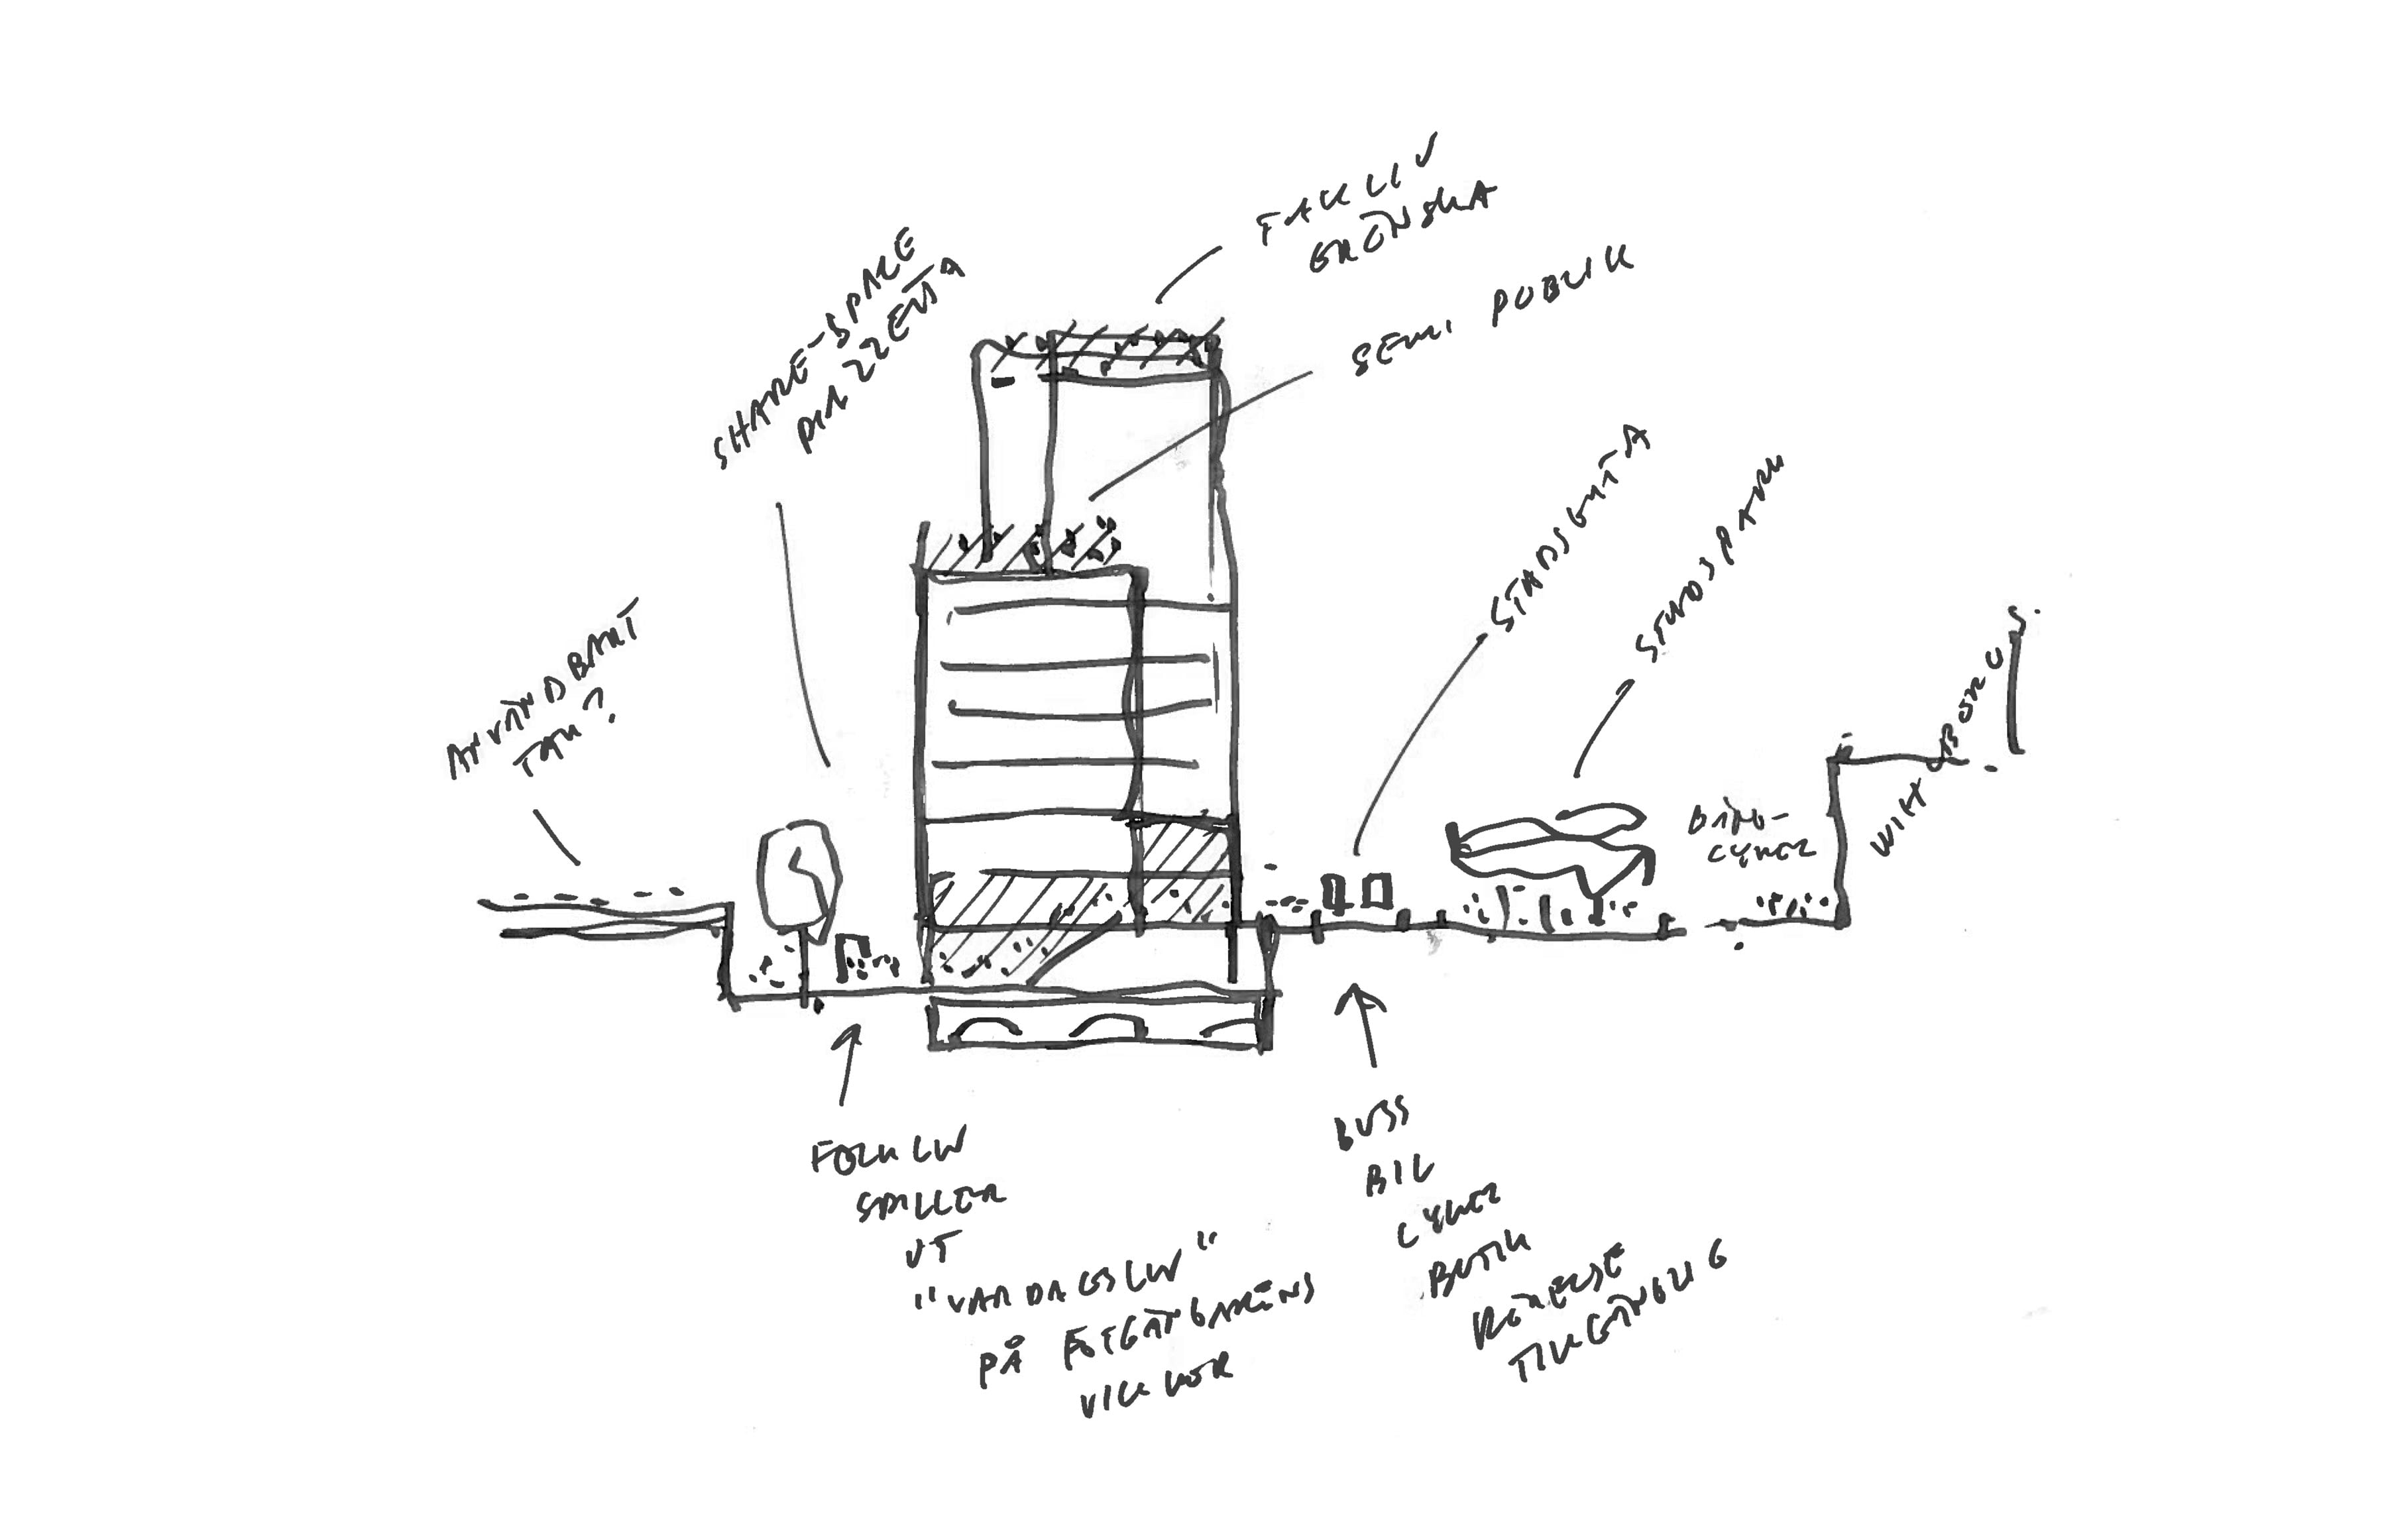 TAKLIV
GRÖNSKA
SEMI PUBLIK
SHARE-SPACE
PIAZZETTA
STADSGATA
STADSPARK
ANVÄNDBART
TAK?
GÅNG-
CYKEL
FOLKLIV
SPILLER
UT
"VARDAGSLIV"
PÅ FOTGÄNGARENS
VILLKOR
BUSS
BIL
CYKEL
BUTIK
RÖRELSE
TILLGÄNGLIG